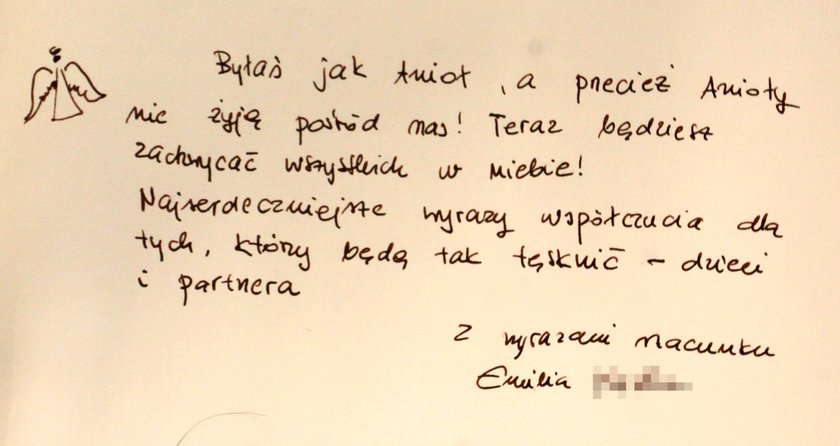 Byłaś jak Anioł, a przecież Anioły
nie żyją pośród nas! Teraz będziesz
zachwycać wszystkich w niebie!
Najserdeczniejsze wyrazy współczucia dla
tych, którzy będą tak tęsknić – dzieci
i partnera
Z wyrazami szacunku
Emilia